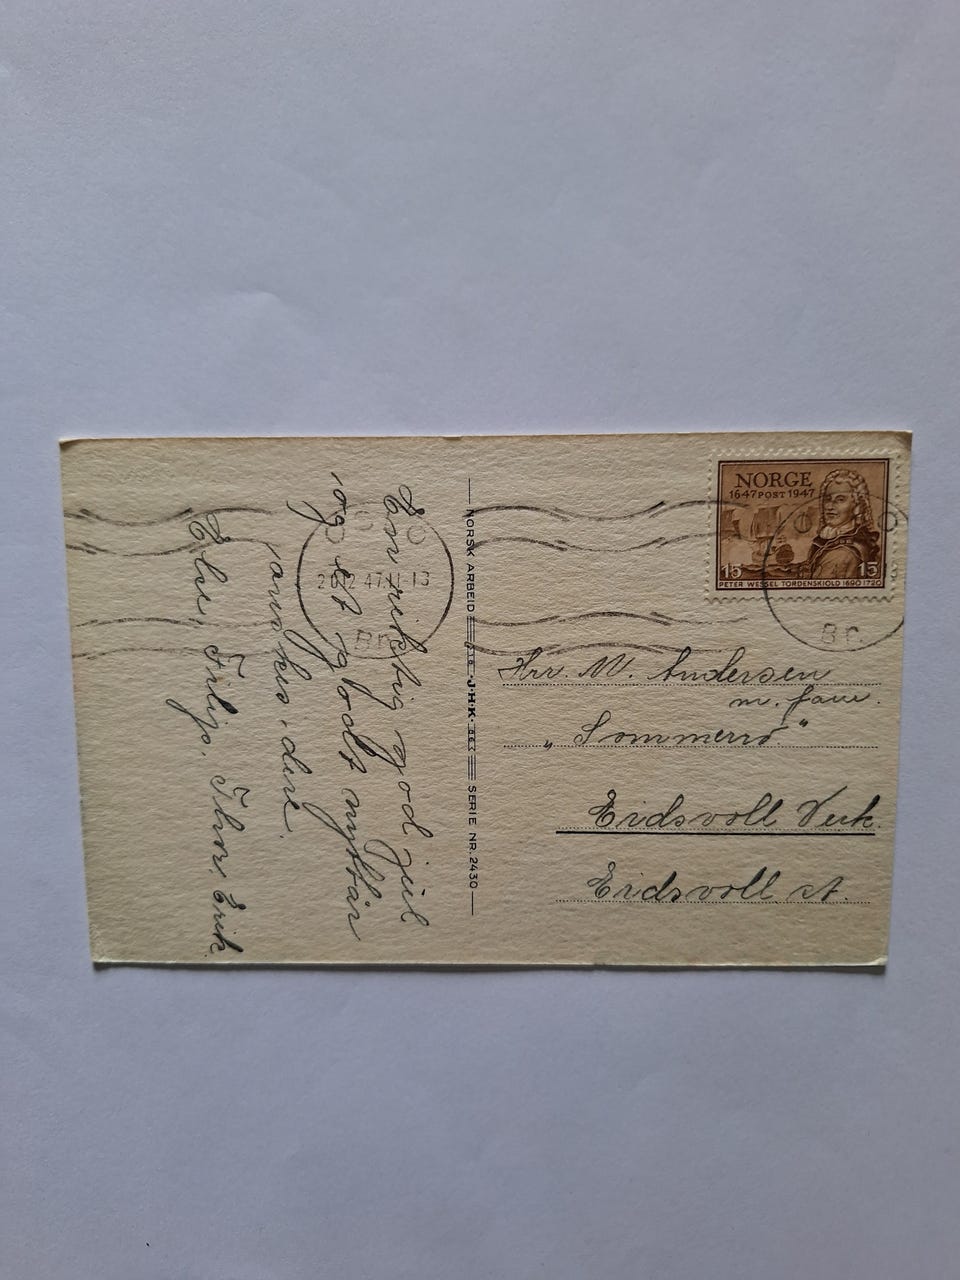 En riktig god jul
og et godt nyttår
ønskes dere.
Else, Filip, Thor Erik
NORSK ARBEID J.H.K. SERIE NR. 2430
NORGE
1647 POST 1947
15 15
PETER WESSEL TORDENSKIOLD 1690 1720
47 11-13
Br.
Br.
Hrr. W. Andersen
m. fam.
"Sommerro"
Eidsvoll Verk.
Eidsvoll st.